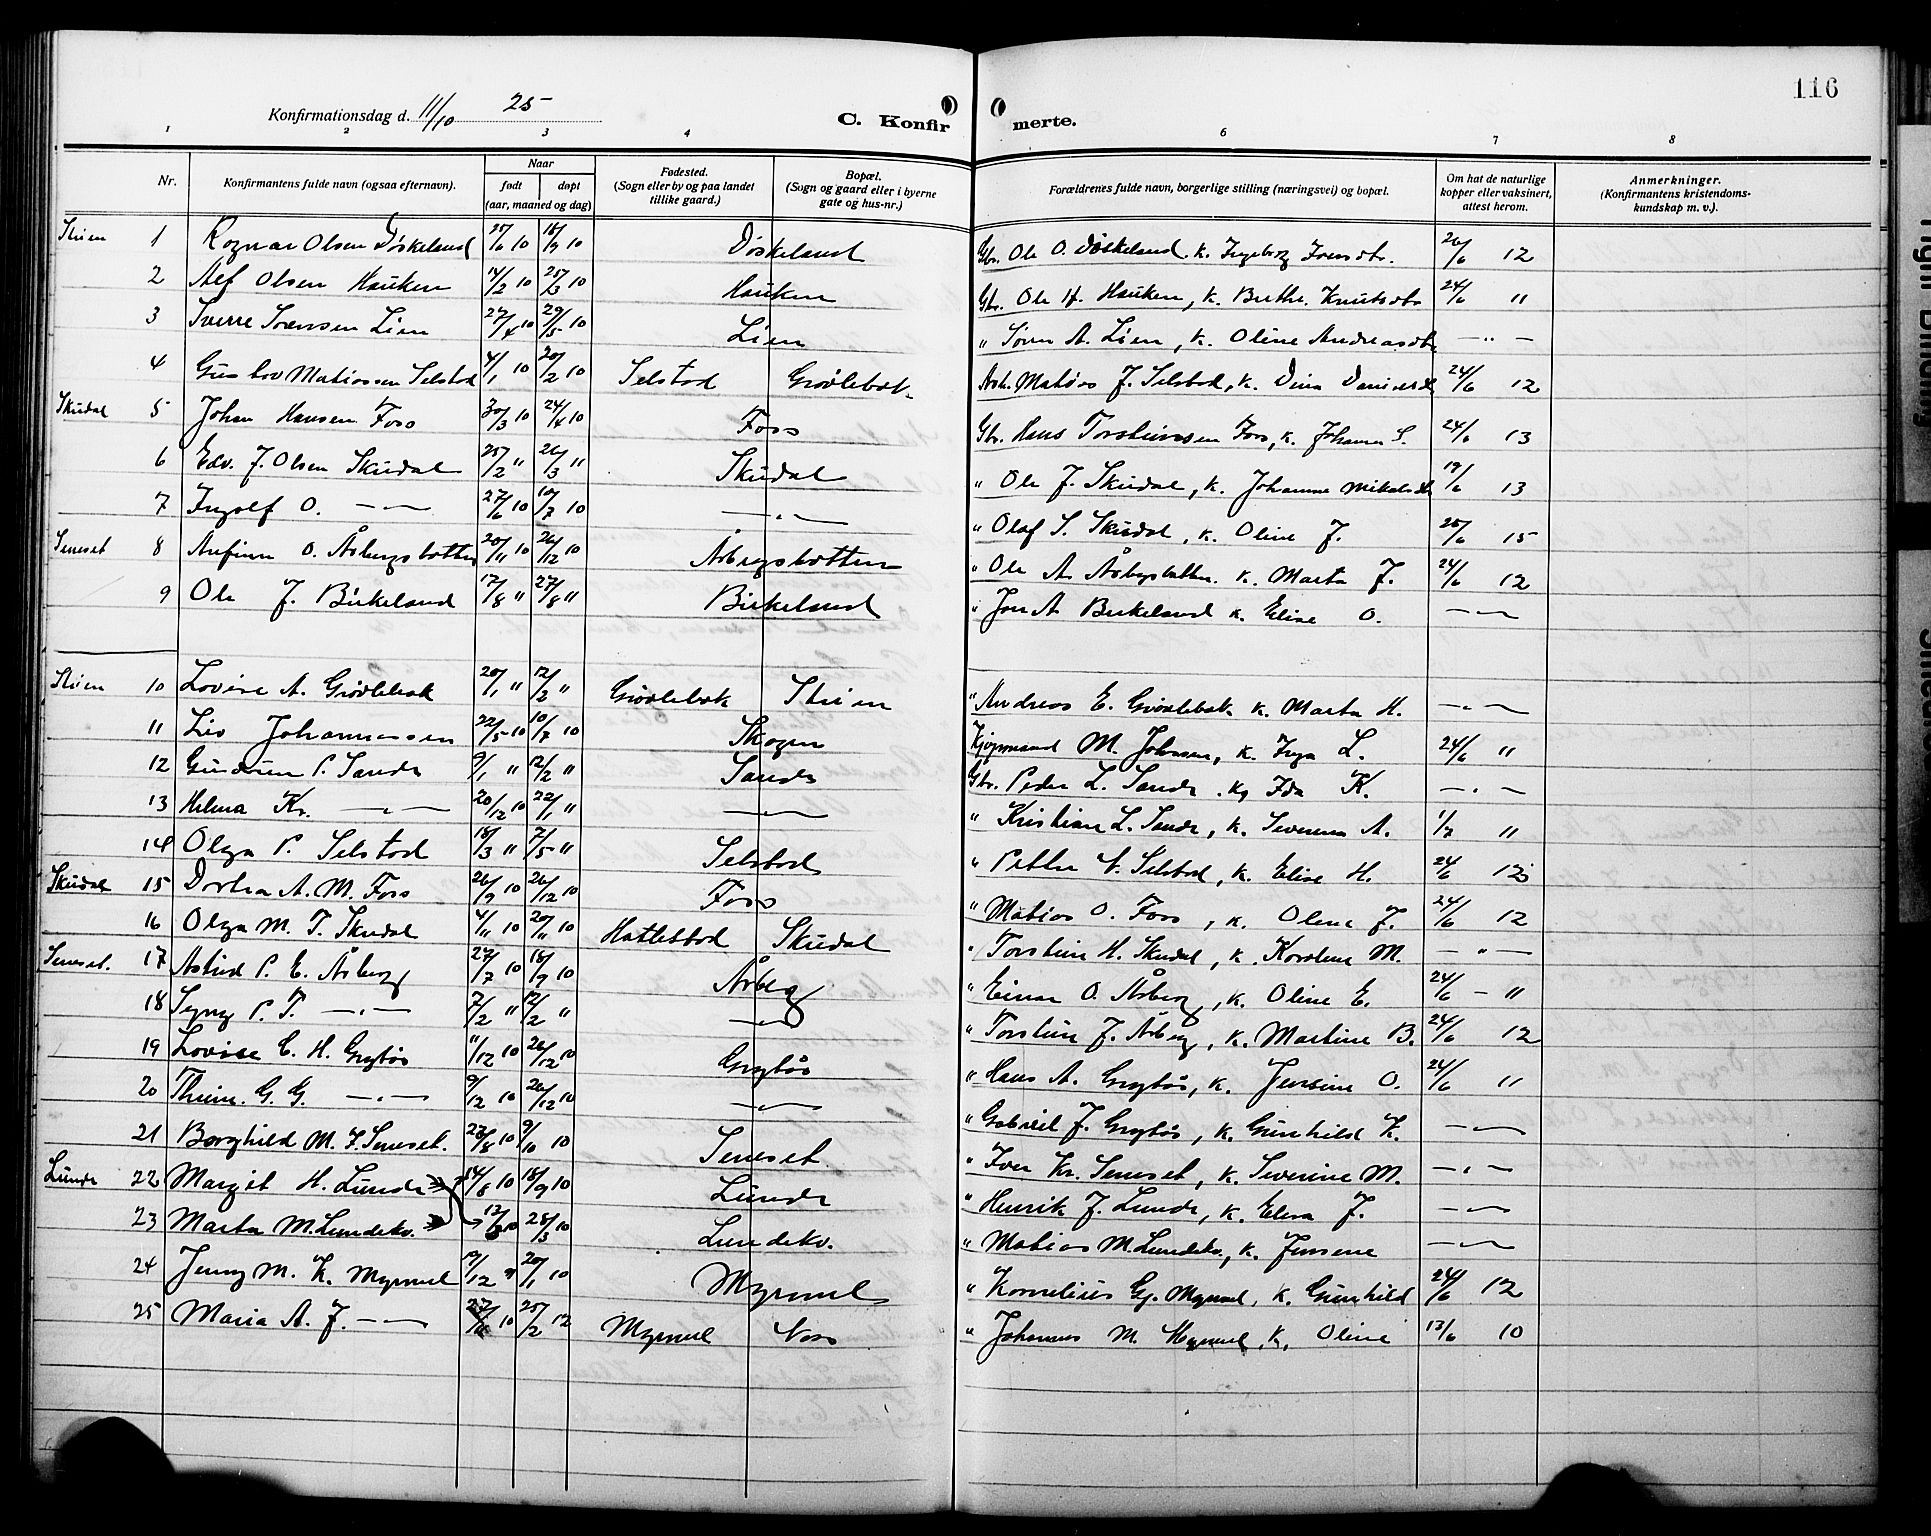 116
Konfirmationsdag d. 11/10 25
C. Konfirmerte.
1 2 3 4 6 7 8
Nr. Konfirmantens fulde navn (ogsaa efternavn). Naar født døpt (aar, maaned og dag) Fødested. (Sogn eller by og paa landet tillike gaard.) Bopæl. (Sogn og gaard eller i byerne gate og hus-nr.) Forældrenes fulde navn, borgerlige stilling (næringsvei) og bopæl. Om hat de naturlige kopper eller vaksinert, attest herom. Anmerkninger. (Konfirmantens kristendomskundskap m. v.).
1 Ragnar Olsen Døskeland 10 18/9 10 Døskeland Gbr. Ole O. Døskeland k. Ingeborg 12
2 Alf Olsen Hauken 14/2 10 25/3 10 Hauken Gbr. Ole H. Hauken, k. Berthe Knutsdtr 24/6 11
3 Sverre Sørensen Lien 27/4 10 29/5 10 Lien " Søren A. Lien, k. Oline Andreasdtr — " —
4 Gustav Matiassen Selstad 4/1 10 20/2 10 Selstad Grøvlebak Matias J. Selstad, k. Dina 24/6 12
Skudal 5 Johan Hansen Foss 30/3 10 24/4 10 Foss Gbr. Hans Torsteinssen Foss, k. Johanne S. 24/6 13
6 Edv. J. Olsen Skudal 25/2 " 26/3 " Skudal " Ole J. Skudal, k. Johanne Mikalsdtr 19/6 13
7 Ingolf O. — " — 27/6 10 10/7 10 — " — " Olaf S. Skudal, k. Oline J. 25/6 15
Seneset 8 Anfinn O. Åsbergsbotten 20/11 10 26/12 10 Åsbergsbotten " Ole A. Åsbergsbotten k. Marta J. 24/6 12
9 Ole J. Birkeland 17/8 " 27/8 " Birkeland " Jon A. Birkeland k. Elise O. — " —
10 Lovise A. Grøvlebak 20/1 " 12/2 " Grøvlebak " Andreas E. Grøvlebak k. Marta H. — " —
11 Liv Johannessen 22/5 10 10/7 10 Skogen Kjøpmand M. Johansen, k. Inga L. 24/6 "
12 Gudrun P. Sande 9/1 " 12/2 " Sande Gbr. Peder L. Sande k. Ida K. — " —
13 Helena Kr. — " — 20/12 10 22/1 " — " — " Kristian L. Sande, k. Severina A. 1/7 11
14 Olga P. Selstad 18/3 " 7/5 " Selstad " Petter N. Selstad, k. Elise H. 24/6 12
Skudal 15 Dortea A. M. Foss 26/9 10 26/12 10 Foss " Matias O. Foss, k. Oline J. 24/6 12
16 Olga M. T. Skudal 4/11 10 20/11 10 Hatlestad Skudal " Torstein H. Skudal, k. Karoline M. — " —
Seneset. 17 Astrid P. E. Åsberg 27/7 10 18/9 10 Åsberg " Einar O. Åsberg, k. Oline E. 24/6 — 11
18 Signy P. T. — " — 7/2 " 12/2 " — " — " Torstein J. Åsberg, k. Martine B. 24/6 12
19 Lovise C. H. Grytøs 11/12 10 26/12 10 Grytøs " Hans A. Grytøs, k. Jensine O. 24/6 11
20 G. G. — " — 9/12 10 26/12 10 — " — " Gabriel J. Grytøs, k. Gunhild K. — " —
21 Borghild M. I. Seneset. 10 9/10 10 Seneset. " Iver Kr. Seneset, k. Severine M. — " —
Lunde 22 Margit H. Lunde 14/8 10 18/9 10 Lunde " Henrik J. Lunde, k. Elina J. — " —
23 Marta M. Lundekv. 10 28/3 10 Lundekv. " Matias M. Lundekv., k. Jensine — " —
24 Jenny M. K. Myrmel 17/12 9 20/1 10 Myrmel " Kornelius Gj. Myrmel, k. Gunhild 24/6 12
25 Maria A. J. — " — 10 25/2 12 Myrmel Voss " Johannes M. Myrmel k. Oline 13/6 10